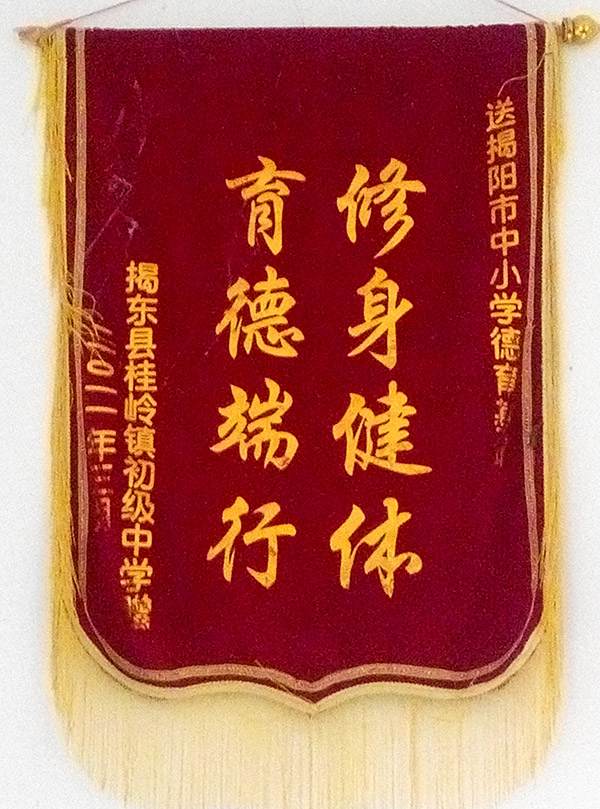 送揭阳市中小学德育
修身健体
育德端行
揭东县桂岭镇初级中学赠
二〇一一年三月